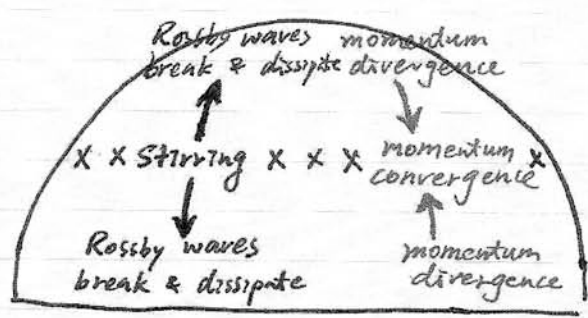 Rossby waves momentum
break & dissipate divergence
X X Stirring X X X momentum X
convergence
Rossby waves
break & dissipate
momentum
divergence